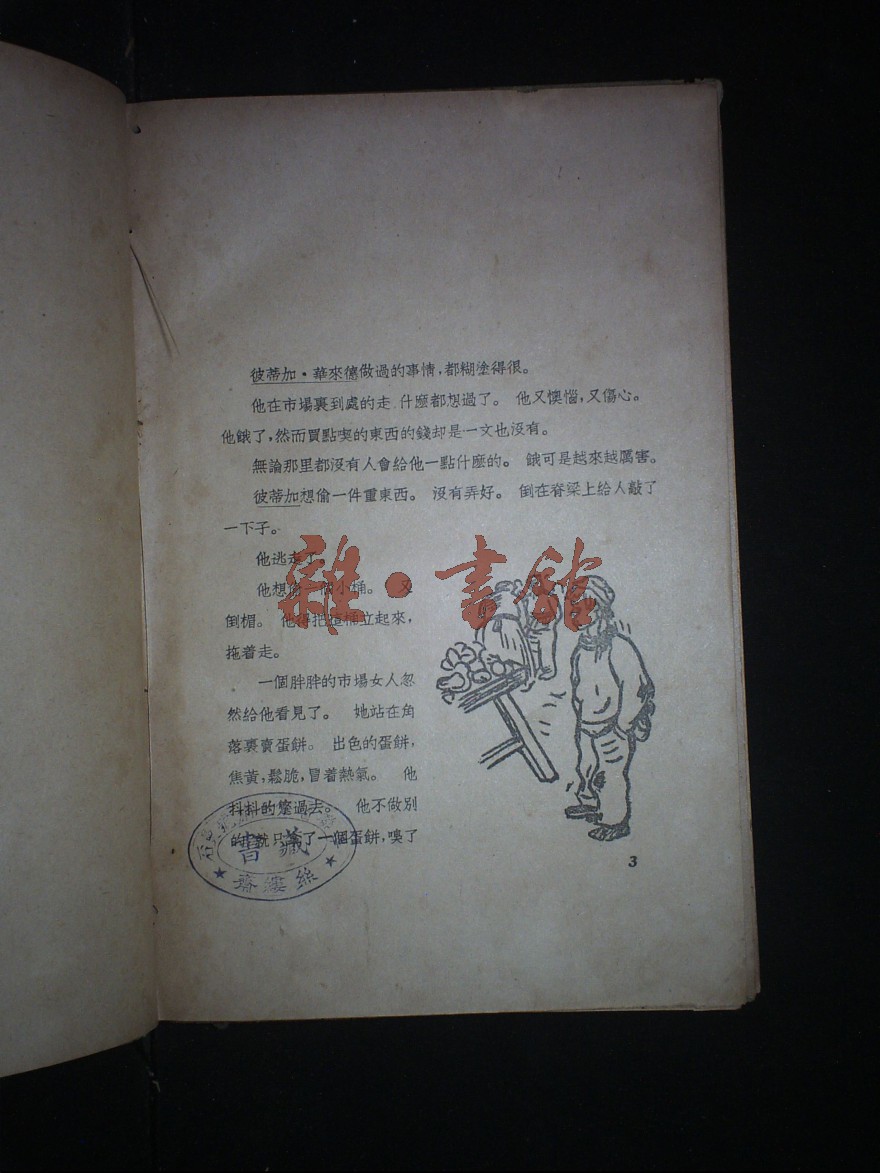 彼蒂加·華來德做過的事情,都糊塗得很。
他在市場裏到處的走 什麼都想過了。 他又懊惱,又傷心。
他餓了,然而買點喫的東西的錢却是一文也沒有。
無論那里都沒有人會給他一點什麼的。 餓可是越來越厲害。
彼蒂加想偷一件重東西。 沒有弄好。 倒在脊梁上給人敲了
一下子。
他逃走了。
他想偷一個小桶。 又
倒楣。 他得把這桶立起來,
拖着走。
一個胖胖的市場女人忽
然給他看見了。 她站在角
落裏賣蛋餅。 出色的蛋餅,
焦黃,鬆脆,冒着熱氣。 他
抖抖的蹩過去。 他不做別
的,就只 了一個蛋餅,嗅了
3
雜·書館
藏書
絲縷齋